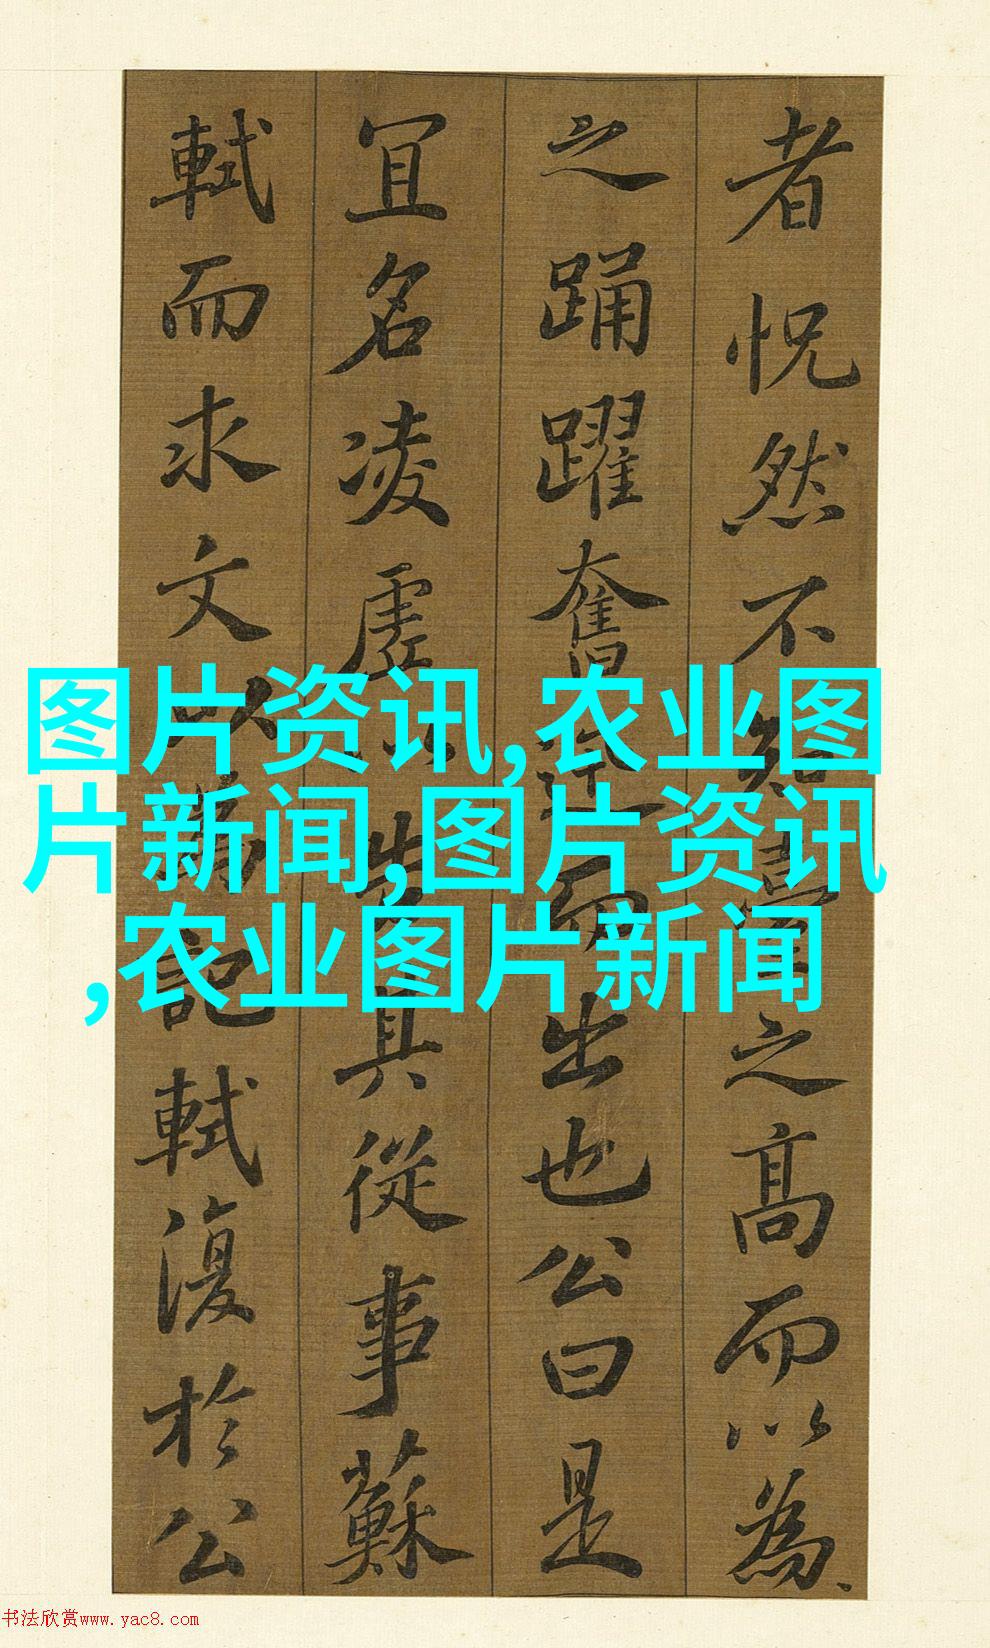 者怳然不知臺之高而以為
之踊躍奮迅而出也公曰是
宜名凌虛以告其從事蘇
軾而求文以為記軾復於公
图片资讯,农业图
片新闻,图片资讯
,农业图片新闻
书法欣赏www.yac8.com